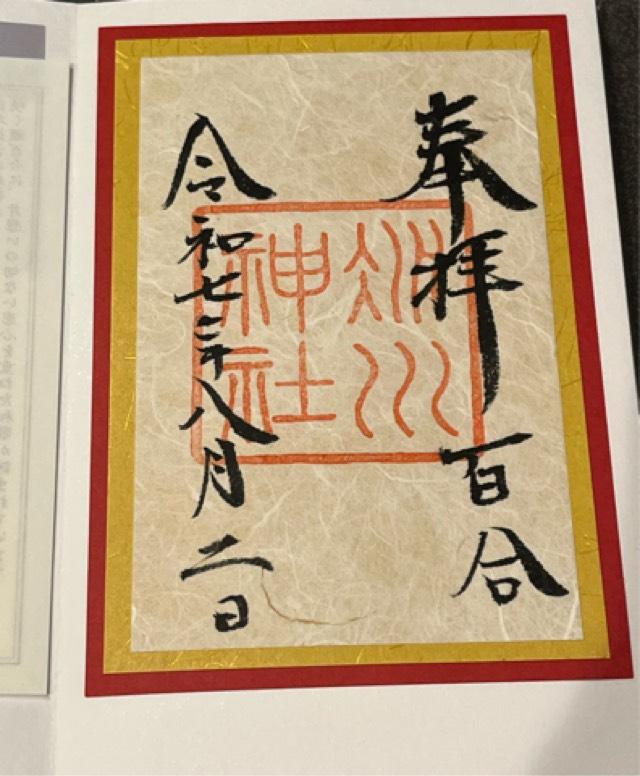 奉拝 百合
川
神社
令和七年八月二日